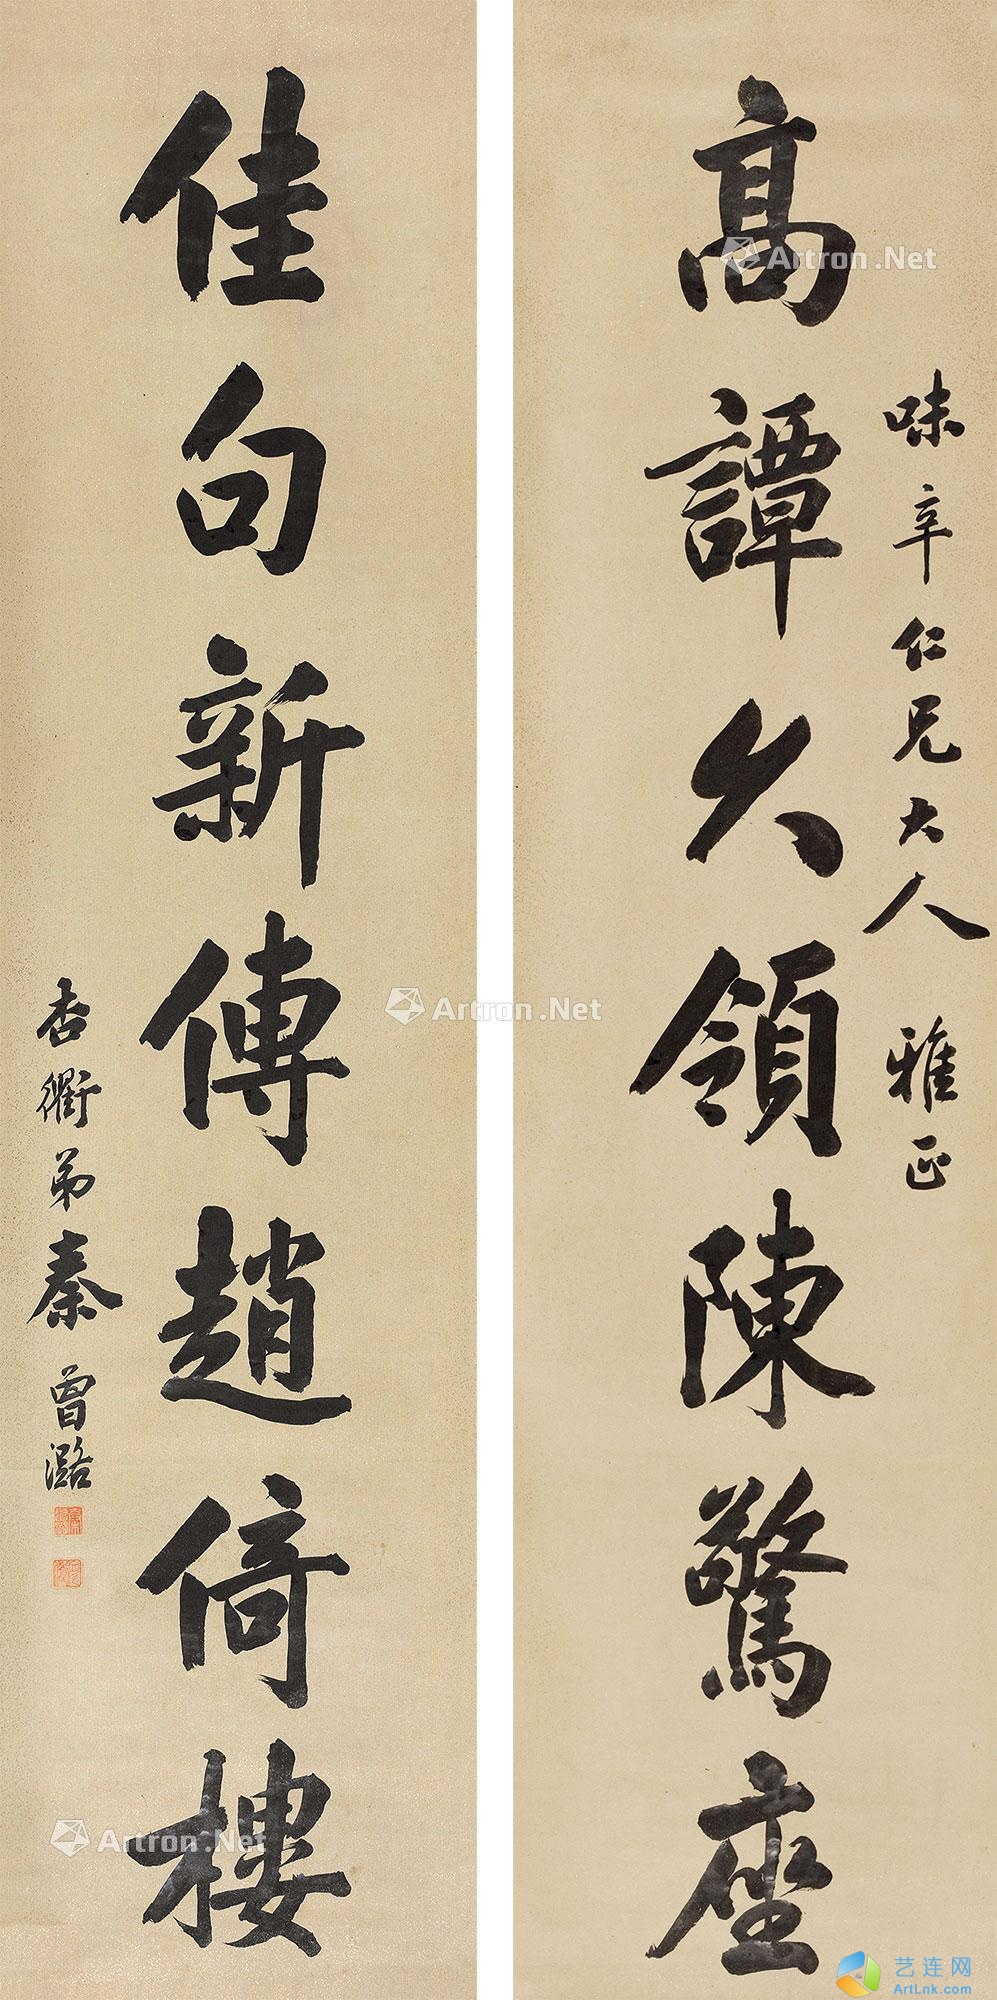 味辛仁兄大人 雅正
高譚久領陳驚座
佳句新傳趙倚樓
杏衢弟秦曾潞
Artron.Net
Artron.Net
Artron.Net
艺连网
ArtLnk.com